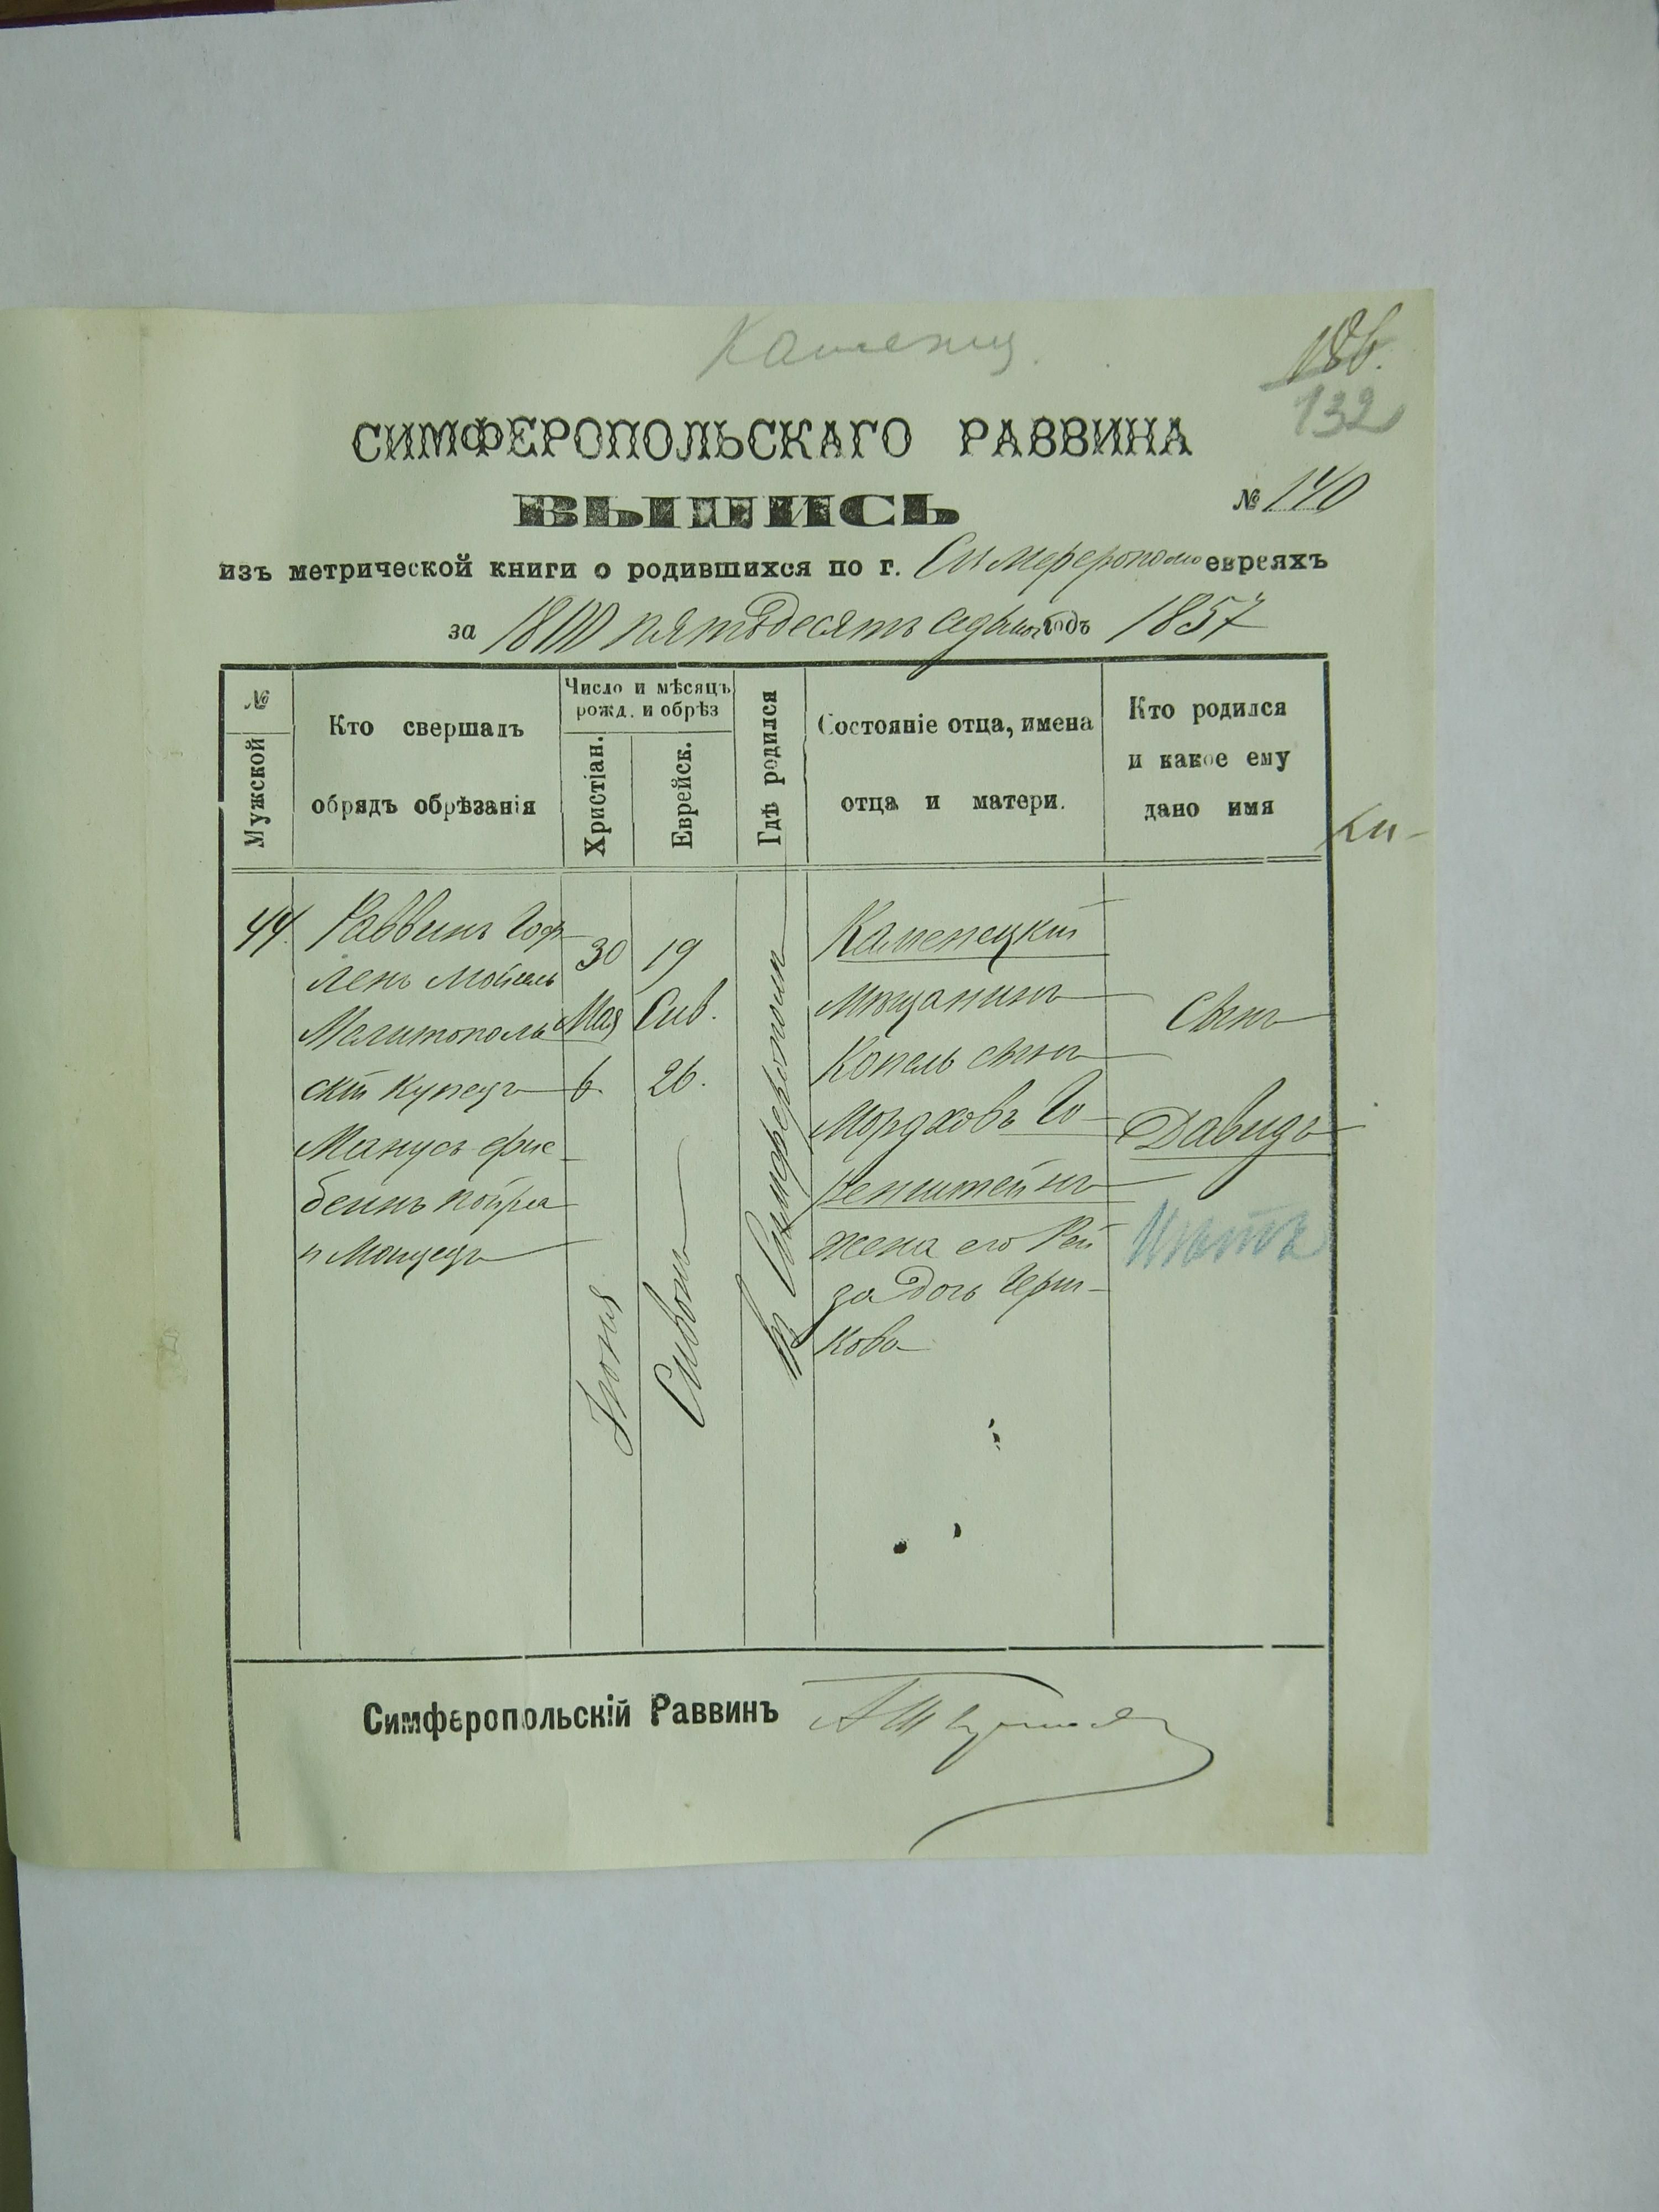 Каменец.
186.
132
СИМФЕРОПОЛЬСКАГО РАВВИНА
ВЫПИСЬ
№ 140
изъ метрической книги о родившихся по г. Симферополю евреяхъ
за 1800 пятьдесятъ седьмой годъ 1857
№
Мужской
Кто свершалъ
обрядъ обрѣзанія
Число и мѣсяцъ
рожд. и обрѣз
Христіан.
Еврейск.
Гдѣ родился
Состояніе отца, имена
отца и матери.
Кто родился
и какое ему
дано имя
44.
Раввинъ
Мелитополь
скій Купецъ
Манусъ
и
30
Мая
6.
Іюня
19
Сив.
26.
Сивонъ
въ Симферополи
Каменецкій
Мѣщанинъ
Копель сынъ
Мордковъ Го-
ренштейнъ
жена его Рей
за дочь Герш-
кова
Сынъ
Давидъ
Симферопольскій Раввинъ